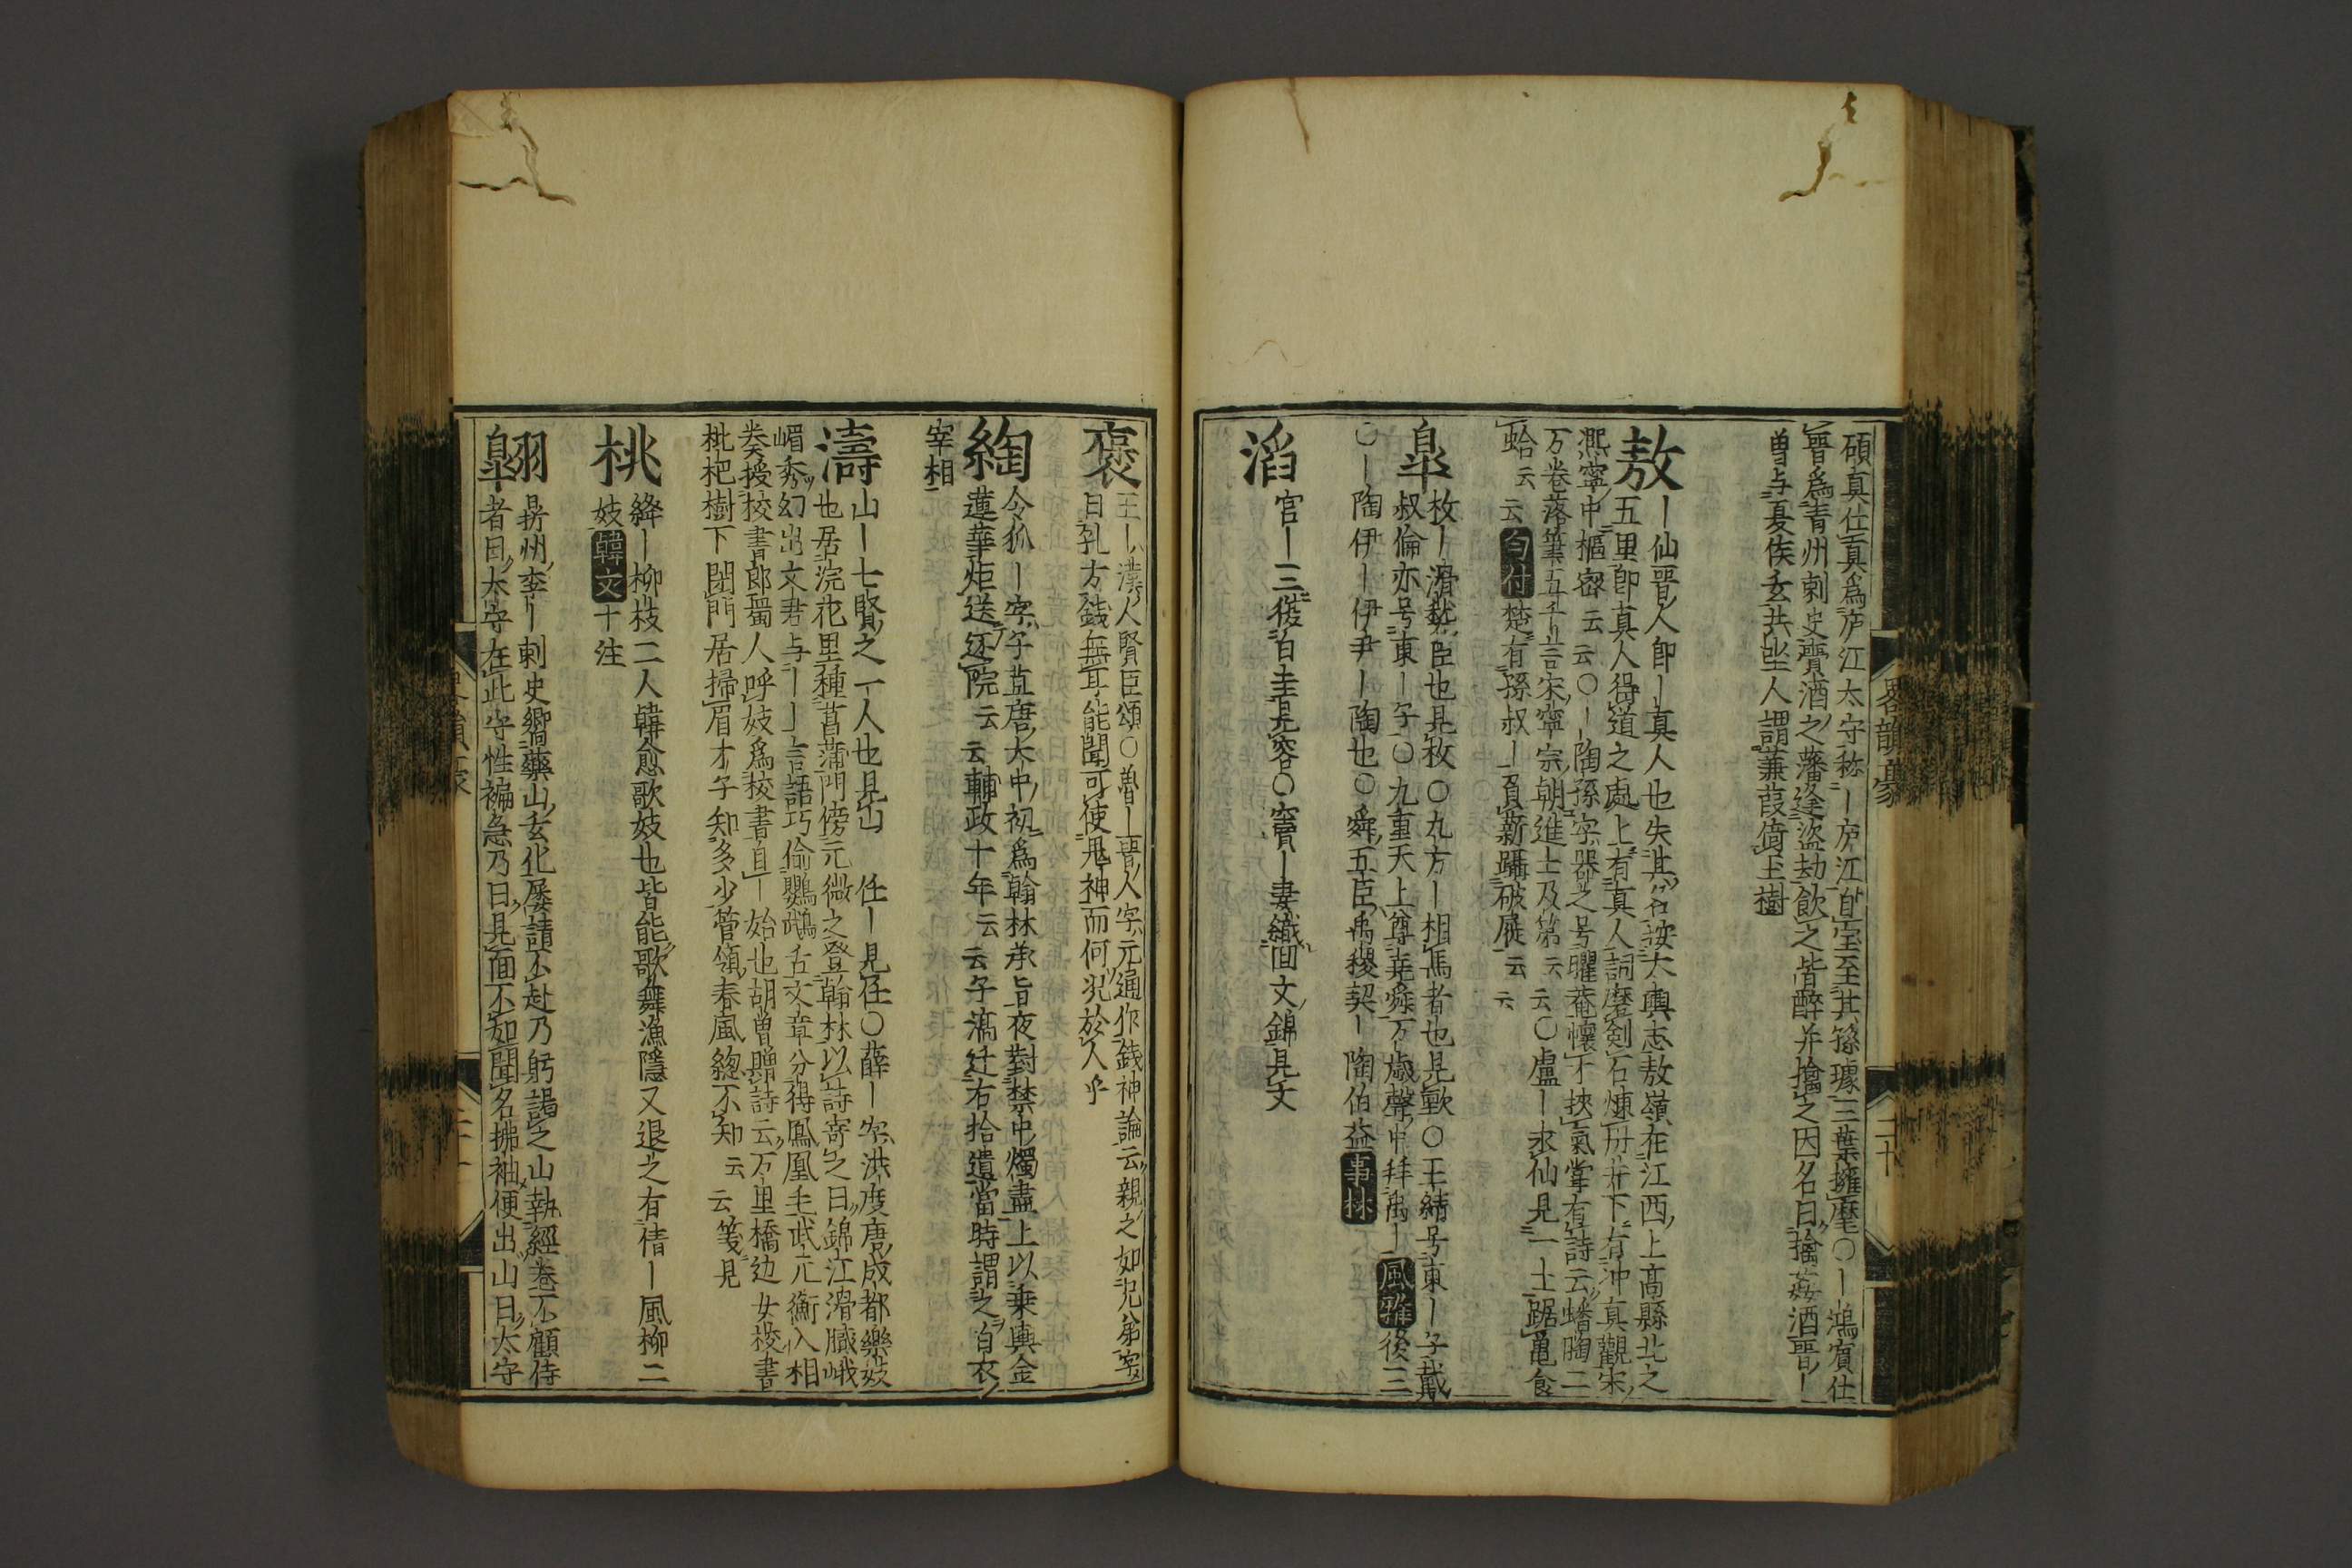 碩真仕真爲庐江太守称―庐江自宝至其孫璩三葉擁麾〇―鴻賓仕
晋爲青州刺史賷酒之藩逢盗劫飲之皆醉并擒之因名曰擒姦酒晋―
曽与夏侯玄共坐人謂蒹葭倚玉樹
敖
―仙晋人即―真人也失其名按大輿志敖嶺在江西上高縣北之
五里即真人得道之處上有真人詞磨剣石煉丹井下有冲真觀宋
熈寧中樞密云云〇―陶孫字器之号曜菴懐才挾氣掌有詩云蟠胸二
万巻落筆五千言宋寧宗朝進士及第云云〇盧―求仙見一士踞亀食
蛤云云勾付楚有孫叔―負新躡破屣云云
皐
枚―滑𥡴臣也見枚〇九方―相馬者也見歅〇王績号東―子戴
叔倫亦号東―子〇九重天上尊堯舜万歳聲中拜禹―風雅後三
〇―陶伊―伊尹―陶也〇舜五臣禹稷契―陶伯益事林
滔
官―三復白圭見容〇竇―妻織回文錦見文
畧韻豪
二十
褒
王―漢人賢臣頌〇魯―晋人字元通作錢神論云親之如兄弟字
曰孔方錢無耳能聞可使鬼神而何况於人乎
綯
令狐―字子直唐大中初爲翰林承旨夜對禁中燭盡上以乗輿金
蓮華炬送还院云云輔政十年云云子滈迁右拾遺當時謂之白衣
宰相
濤
山―七賢之一人也見山 任―見任〇薛―字洪度唐成都樂妓
也居浣花里種菖蒲門傍元微之登翰林以詩寄之曰錦江滑膩峨
嵋秀幻出文君与――言語巧偷鸚鵡舌文章分得鳳凰毛武元衡入相
奏授校書郎蜀人呼妓爲校書自―始也胡曽贈詩云万里橋边女校書
枇杷樹下閉門居掃眉才子知多少管領春風緫不知云云箋見
桃
絳―柳枝二人韓愈歌妓也皆能歌舞漁隠又退之有倩―風柳二
妓韓文十注
翶
昦州李―刺史嚮藥山玄化屡請不赴乃躬謁之山執經巻不顧侍
者曰太守在此守性褊急乃曰見面不如聞名拂袖便出山曰太守